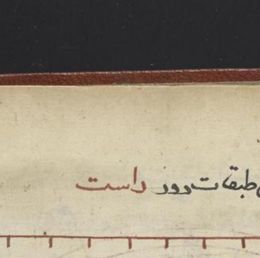 طبقات روز راست